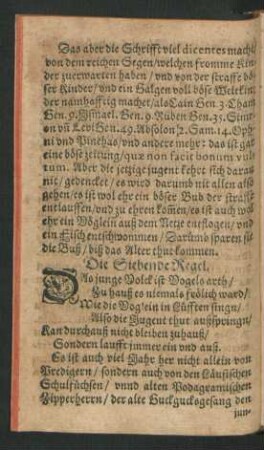 Das aber die Schrifft viel dicentes macht
von dem reichen Segen/welchen fromme Kin-
der zuerwarten haben/vnd von der straffe bö-
ser Kinder/vnd ein Galgen voll böse Weltkin-
der namhafftig machet/als Cain Gen. 3. Cham
Gen. 9. Ismael. Gen. 9. Ruben Gen. 35. Sime-
on vñ Levi Gen. 49. Absolon/2. Sam. 14. Oph-
ni vnd Pinehas/vnd andere mehr: das ist gar
eine böse zeitung/quæ non facit bonum vul-
tum. Aber die jetzige jugent kehrt sich daran
nit/gedencket/es wird darumb nit allen also
gehen/es ist wol ehr ein böser Bub der straffe
entlauffen/vnd zu ehren kom̃en/es ist auch wol
ehr ein Vöglein auß dem Netze entflogen/vnd
ein Fisch entschwommen/Darumb sparen sie
die Buß/biß das Alter thut kommen.
Die Siebende Regel.
DAs junge Volck ist Vogels arth/
Zu hauß es niemals frölich ward/
Wie die Vög'ein in Lüfften singn/
Also die Jugent thut außspringn/
Kan durchauß nicht bleiben zuhauß/
Sondern laufft jmmer ein vnd auß.
Es ist auch viel Jahr her nicht allein von
Predigern/sondern auch von den Läusischen
Schulfüchsen/vnnd alten Podagramischen
Zipperherrn/der alte Guckgucksgesang den
jun-